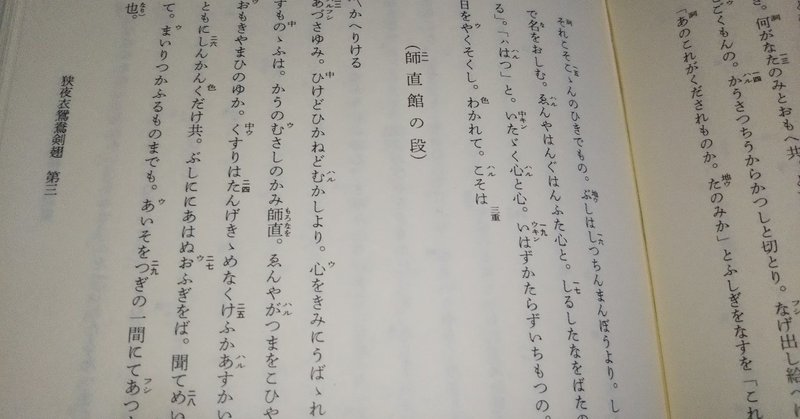 き。何がなたのみとおもへ共、と
ごくもんの。かうさつちうからかつしと切とり。なげ出し給へ
「あのこれがくだされものか。たのみか」とふしぎをなすを「これ
それこそこゝんのひきでもの。ぶしはしつちんまんぼうより。し
な名をおしむ。ゑんやはんぐはんふた心と。しるしたなをばたの
る。」「ハはつ」と。いたゞく心と心。いはずかたらずいちもつの。
日をやくそくし。わかれて。こそは
(師直館の段)
へかへりける
あづさゆみ。ひけどひかねどむかしより。心をきみにうばゝれ
すものゝふは。かうのむさしのかみ師直。ゑんやがつまをこひや
おもきやまひのゆか。くすりはたんげきゝめなくけふかあすかい
ともにしんかんくだけ共。ぶしににあはぬおふぎをば。聞てめい
て。まいりつかふるものまでも。あいそをつぎの一間にてあつ
也。
狭夜衣鴛鴦剣翅 第三